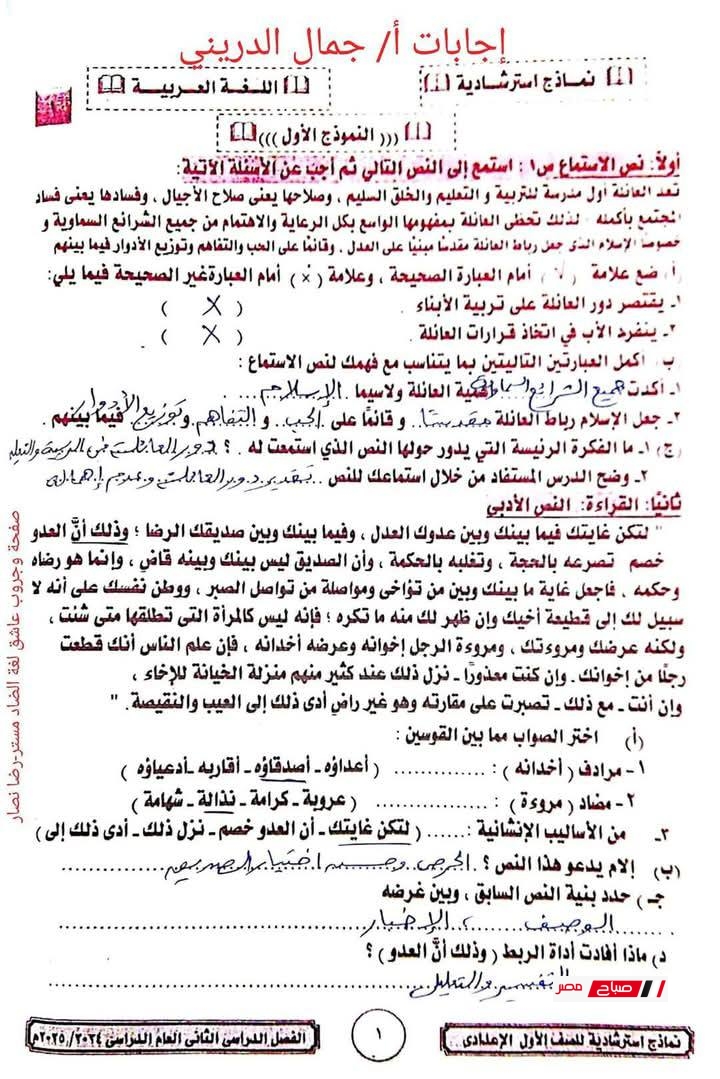 إجابات أ/ جمال الدريني
نماذج استرشادية
اللغة العربية
((( النموذج الأول )))
أولاً: نص الاستماع س١ : استمع إلى النص التالي ثم أجب عن الأسئلة الآتية:
تعد العائلة أول مدرسة للتربية و التعليم والخلق السليم ، وصلاحها يعنى صلاح الأجيال ، وفسادها يعنى فساد
المجتمع بأكمله . لذلك تحظى العائلة بمفهومها الواسع بكل الرعاية والاهتمام من جميع الشرائع السماوية و
خصوصًا الإسلام الذى جعل رباط العائلة مقدسًا مبنيًا على العدل ، وقائمًا على الحب والتفاهم وتوزيع الأدوار فيما بينهم
أ- ضع علامة ( √ ) أمام العبارة الصحيحة ، وعلامة (×) أمام العبارة غير الصحيحة فيما يلي:
١- يقتصر دور العائلة على تربية الأبناء . ( X )
٢- ينفرد الأب في اتخاذ قرارات العائلة ( X )
ب- اكمل العبارتين التاليتين بما يتناسب مع فهمك لنص الاستماع :
١- أكدت جميع الشرائع السماوية أهمية العائلة ولاسيما .الإسلام....
٢- جعل الإسلام رباط العائلة مقدسًا ، و قائمًا على .الحب. و التفاهم. وتوزيع الأدوار فيما بينهم .
(ج) ١- ما الفكرة الرئيسة التي يدور حولها النص الذي استمعت له . ؟ دور العائلة في التربية والتعليم
٢- وضح الدرس المستفاد من خلال استماعك للنص ..تقدير دور العائلة وعدم إهماله
ثانيًا: القراءة: النص الأدبى
" لتكن غايتك فيما بينك وبين عدوك العدل ، وفيما بينك وبين صديقك الرضا ؛ وذلك أنَّ العدو
خصم تصرعه بالحجة ، وتغلبه بالحكمة ، وأن الصديق ليس بينك وبينه قاضٍ ، وإنما هو رضاه
وحكمه ، فاجعل غاية ما بينك وبين من تؤاخى ومواصلة من تواصل الصبر ، ووطن نفسك على أنه لا
سبيل لك إلى قطيعة أخيك وإن ظهر لك منه ما تكره ؛ فإنه ليس كالمرأة التى تطلقها متى شئت ،
ولكنه عرضك ومروءتك ، ومروءة الرجل إخوانه وعرضه أخدانه ، فإن علم الناس أنك قطعت
رجلًا من إخوانك . وإن كنت معذورًا - نزل ذلك عند كثير منهم منزلة الخيانة للإخاء ،
وإن أنت - مع ذلك - تصبرت على مقارته وهو غير راضٍ أدى ذلك إلى العيب والنقيصة . "
(أ) اختر الصواب مما بين القوسين :
١- مرادف ( أخدانه ) : ............. ( أعداؤه - أصدقاؤه - أقاربه - أدعياؤه )
٢- مضاد ( مروءة ) : ............. ( عروبة - كرامة - نذالة - شهامة )
٣- من الأساليب الإنشائية : ...... ( لتكن غايتك - أن العدو خصم - نزل ذلك - أدى ذلك إلى )
(ب) إلام يدعو هذا النص ؟ .الحرص وحسن اختيار الصديق
جـ ) حدد بنية النص السابق ، وبين غرضه
الوصف ، الإخبار
د) ماذا أفادت أداة الربط ( وذلك أنَّ العدو ) ؟
التفسير والتعليل
صباح مصر
نماذج استرشادية للصف الأول الإعدادى
١
الفصل الدراسى الثانى العام الدراسى ٢٠٢٤/٢٠٢٥م
صفحة وجروب عاشق لغة الضاد مستر-رضا نصار